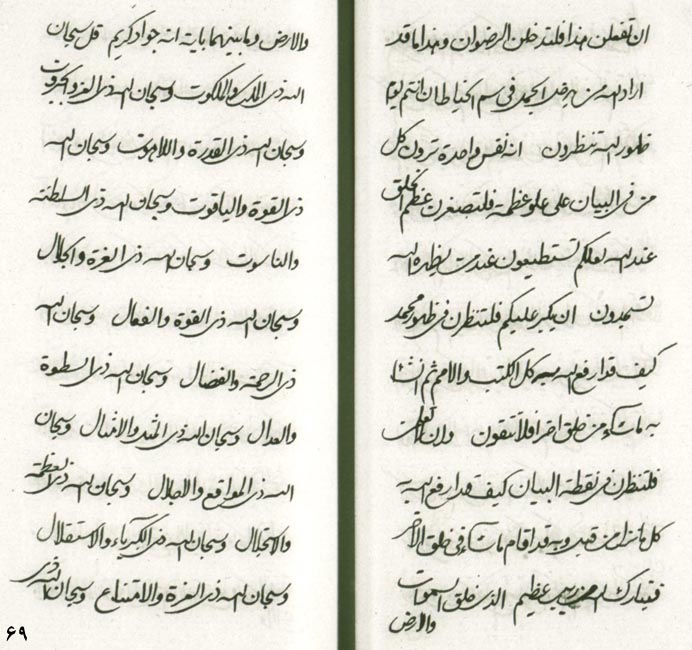 ان تفعلن هذا فلتدخلن الرضوان وهذا ما قد
اراد الله من ... الحمد في سم الخياط ان انتم يوم
ظهور الله تنظرون انه نفس واحدة ترون كل
من في البيان على علو عظمه فلتصغرن عظم الخلق
عند الله لعلكم تستطيعون عند من يظهره الله
تسجدون ان يكبر عليكم فلتنظرن في ظهور محمد
كيف قد ارفع الله به كل الكتب والامم ثم انشا
به ما شاء من خلق اخر افلا تتقون وان
فلتنظرن في نقطة البيان كيف قد ارفع الله به
كل ما نزل من قبل وبه قد اقام ما شاء في خلق الاخر
فتبارك الله من عظيم الذي خلق السموات
والارض
والارض وما بينهما باية انه جواد كريم قل سبحان
الله ذي الملك والملكوت وسبحان الله ذي العز والجبروت
وسبحان الله ذي القدرة واللاهوت وسبحان الله
ذي القوة والياقوت وسبحان الله ذي السلطنة
والناسوت وسبحان الله ذي العزة والجلال
وسبحان الله ذي القوة والفعال وسبحان الله
ذي الرحمة والفضال وسبحان الله ذي السطوة
والعدال وسبحان الله ذي المثل والامثال وسبحان
الله ذي المواقع والاجلال وسبحان الله ذي العظمة
والاجلال وسبحان الله ذي الكبرياء والاستقلال
وسبحان الله ذي العزة والامتناع وسبحان الله ذي
۶۹